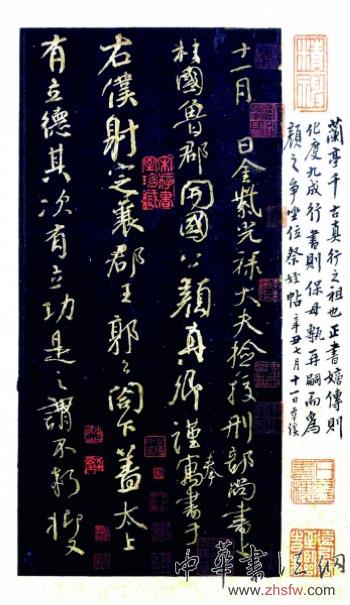 蘭亭千古真行之祖也正書嫡傳則
化度九成行書則保母甎再嗣而為
顏之爭坐位祭姪帖 辛丑七月十一日
十一月 日金紫光祿大夫檢挍刑部尚書上
柱國魯郡開國公顏真卿謹奉寓書于
右僕射定襄郡王郭公閤下蓋太上
有立德其次有立功是之謂不朽抑又
中華書法網
www.zhsfw.com